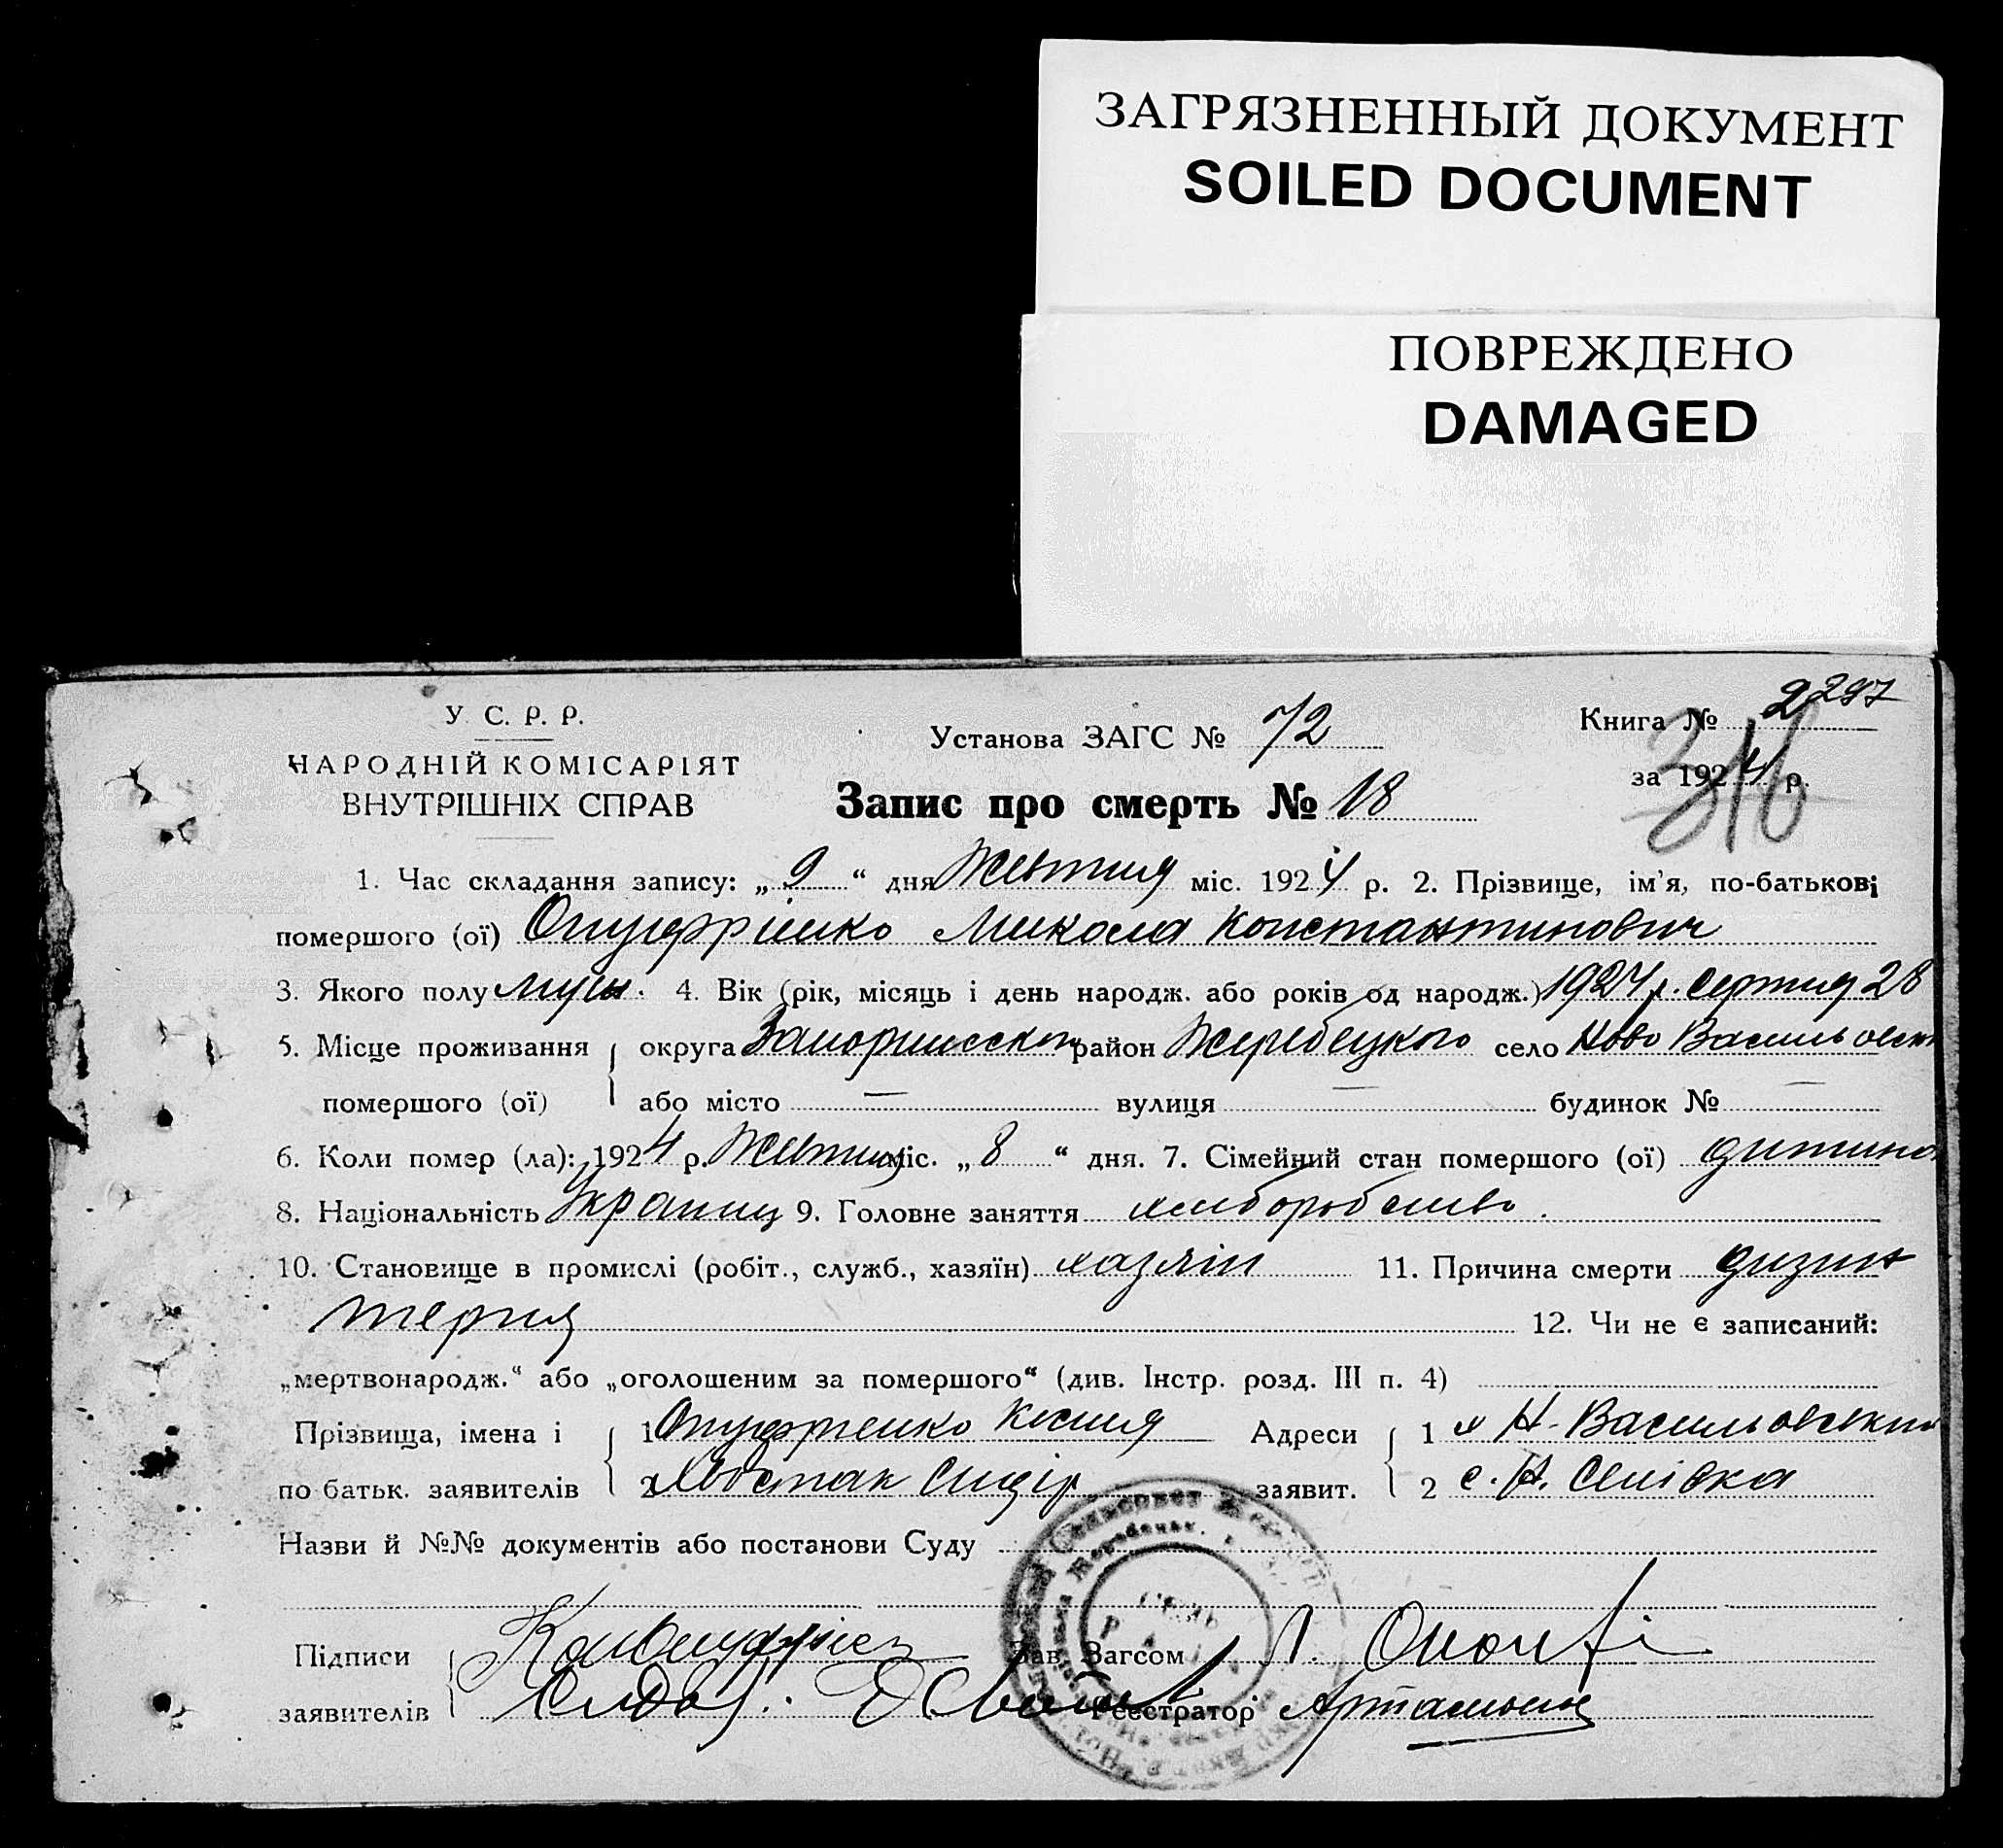 ЗАГРЯЗНЕННЫЙ ДОКУМЕНТ
SOILED DOCUMENT
ПОВРЕЖДЕНО
DAMAGED
У. С. Р. Р.
НАРОДНІЙ КОМІСАРІЯТ
ВНУТРІШНІХ СПРАВ
Установа ЗАГС № 72
Книга № 2297
за 1924 р.
316
Запис про смерть № 18
1. Час складання запису: „9“ дня Жовтня міс. 1924 р. 2. Прізвище, ім'я, по-батькові
помершого (ої) Онуфрієнко Микола Константинович
3. Якого полу муж. 4. Вік (рік, місяць і день народж. або років од народж.) 1924 р. серпня 28
5. Місце проживання округа район Жеребецкого село Ново Васильовськ
помершого (ої) або місто — вулиця — будинок № —
6. Коли помер (ла): 1924 р. Жовтня міс. „8“ дня. 7. Сімейний стан помершого (ої) дитина
8. Національність Украинец 9. Головне заняття хлиборобство.
10. Становище в промислі (робіт., служб., хазяїн) хазяін 11. Причина смерти дизин
терия 12. Чи не є записаний:
„мертвонародж.“ або „оголошеним за помершого“ (див. Інстр. розд. III п. 4)
Прізвища, імена і 1 Онуфрієнко Адреси 1 х Н-Васильовський
по батьк. заявителів 2 Сидір заявит. 2 с. Н.
Назви й №№ документів або постанови Суду
Підписи Зав. Загсом
заявителів Реєстратор